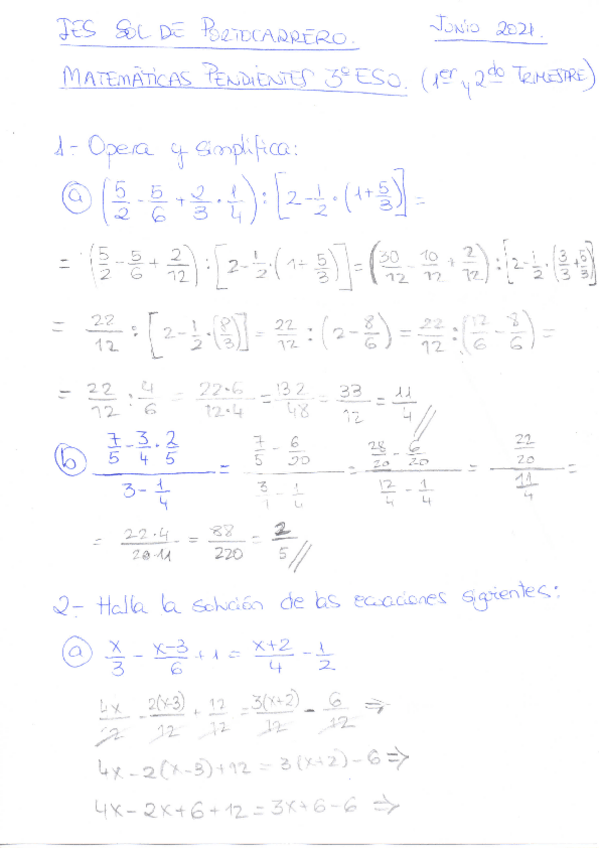 IES SOL DE PORTOCARRERO. JUNIO 2021.
MATEMÁTICAS PENDIENTES 3º ESO. (1er y 2do TRIMESTRE)
1- Opera y simplifica:
ⓐ (5/2 - 5/6 + 2/3 · 1/4) : [2 - 1/2 · (1 + 5/3)] =
= (5/2 - 5/6 + 2/12) : [2 - 1/2 · (1 + 5/3)] = (30/12 - 10/12 + 2/12) : [2 - 1/2 · (3/3 + 5/3)]
= 22/12 : [2 - 1/2 · (8/3)] = 22/12 : (2 - 8/6) = 22/12 : (12/6 - 8/6) =
= 22/12 : 4/6 = 22·6/12·4 = 132/48 = 33/12 = 11/4 //
ⓑ (7/5 - 3/4 · 2/5)/(3 - 1/4) = (7/5 - 6/20)/(3/1 - 1/4) = (28/20 - 6/20)/(12/4 - 1/4) = (22/20)/(11/4) =
= 22·4/20·11 = 88/220 = 2/5 //
2- Halla la solución de las ecuaciones siguientes:
ⓐ x/3 - x-3/6 + 1 = x+2/4 - 1/2
4x/12 - 2(x-3)/12 + 12/12 = 3(x+2)/12 - 6/12 ⇒
4x - 2(x-3) + 12 = 3(x+2) - 6 ⇒
4x - 2x + 6 + 12 = 3x + 6 - 6 ⇒